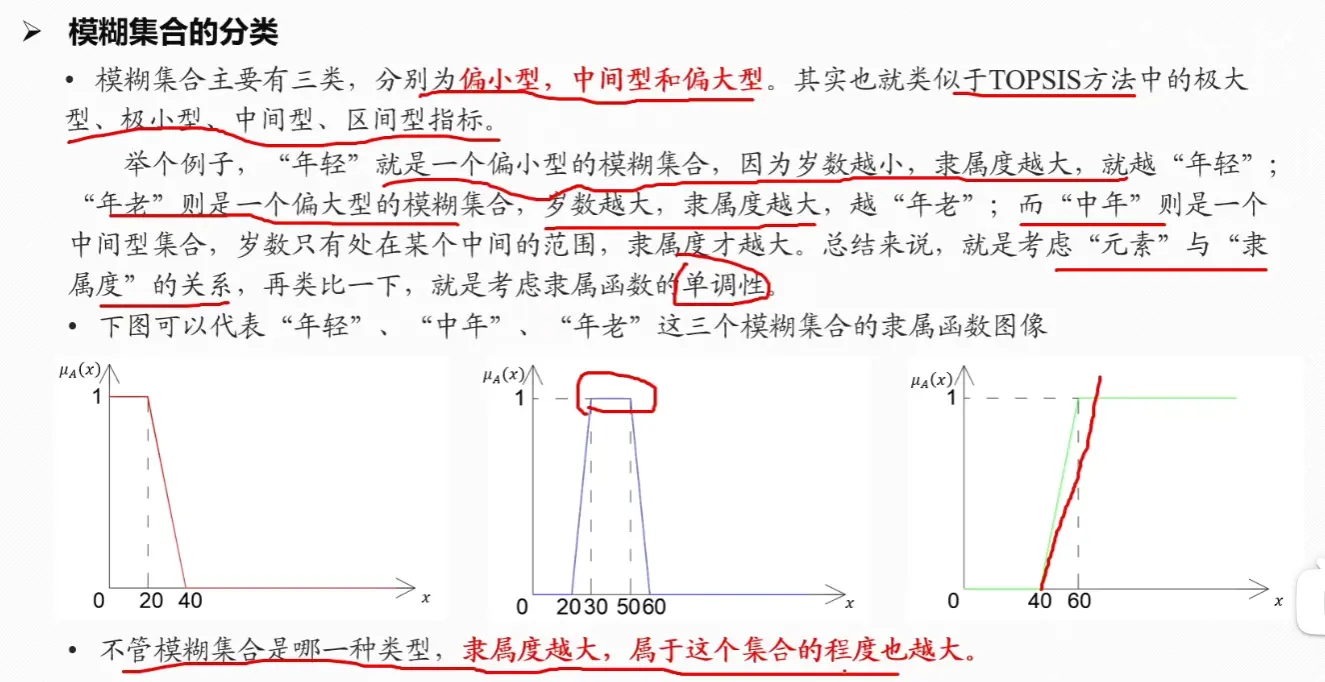 ➤ 模糊集合的分类
• 模糊集合主要有三类，分别为偏小型，中间型和偏大型。其实也就类似于TOPSIS方法中的极大
型、极小型、中间型、区间型指标。
举个例子，“年轻”就是一个偏小型的模糊集合，因为岁数越小，隶属度越大，就越“年轻”；
“年老”则是一个偏大型的模糊集合，岁数越大，隶属度越大，越“年老”；而“中年”则是一个
中间型集合，岁数只有处在某个中间的范围，隶属度才越大。总结来说，就是考虑“元素”与“隶
属度”的关系，再类比一下，就是考虑隶属函数的单调性。
• 下图可以代表“年轻”、“中年”、“年老”这三个模糊集合的隶属函数图像
μ_A(x)
1
0 20 40 x
μ_A(x)
1
0 20 30 50 60 x
μ_A(x)
1
0 40 60 x
• 不管模糊集合是哪一种类型，隶属度越大，属于这个集合的程度也越大。